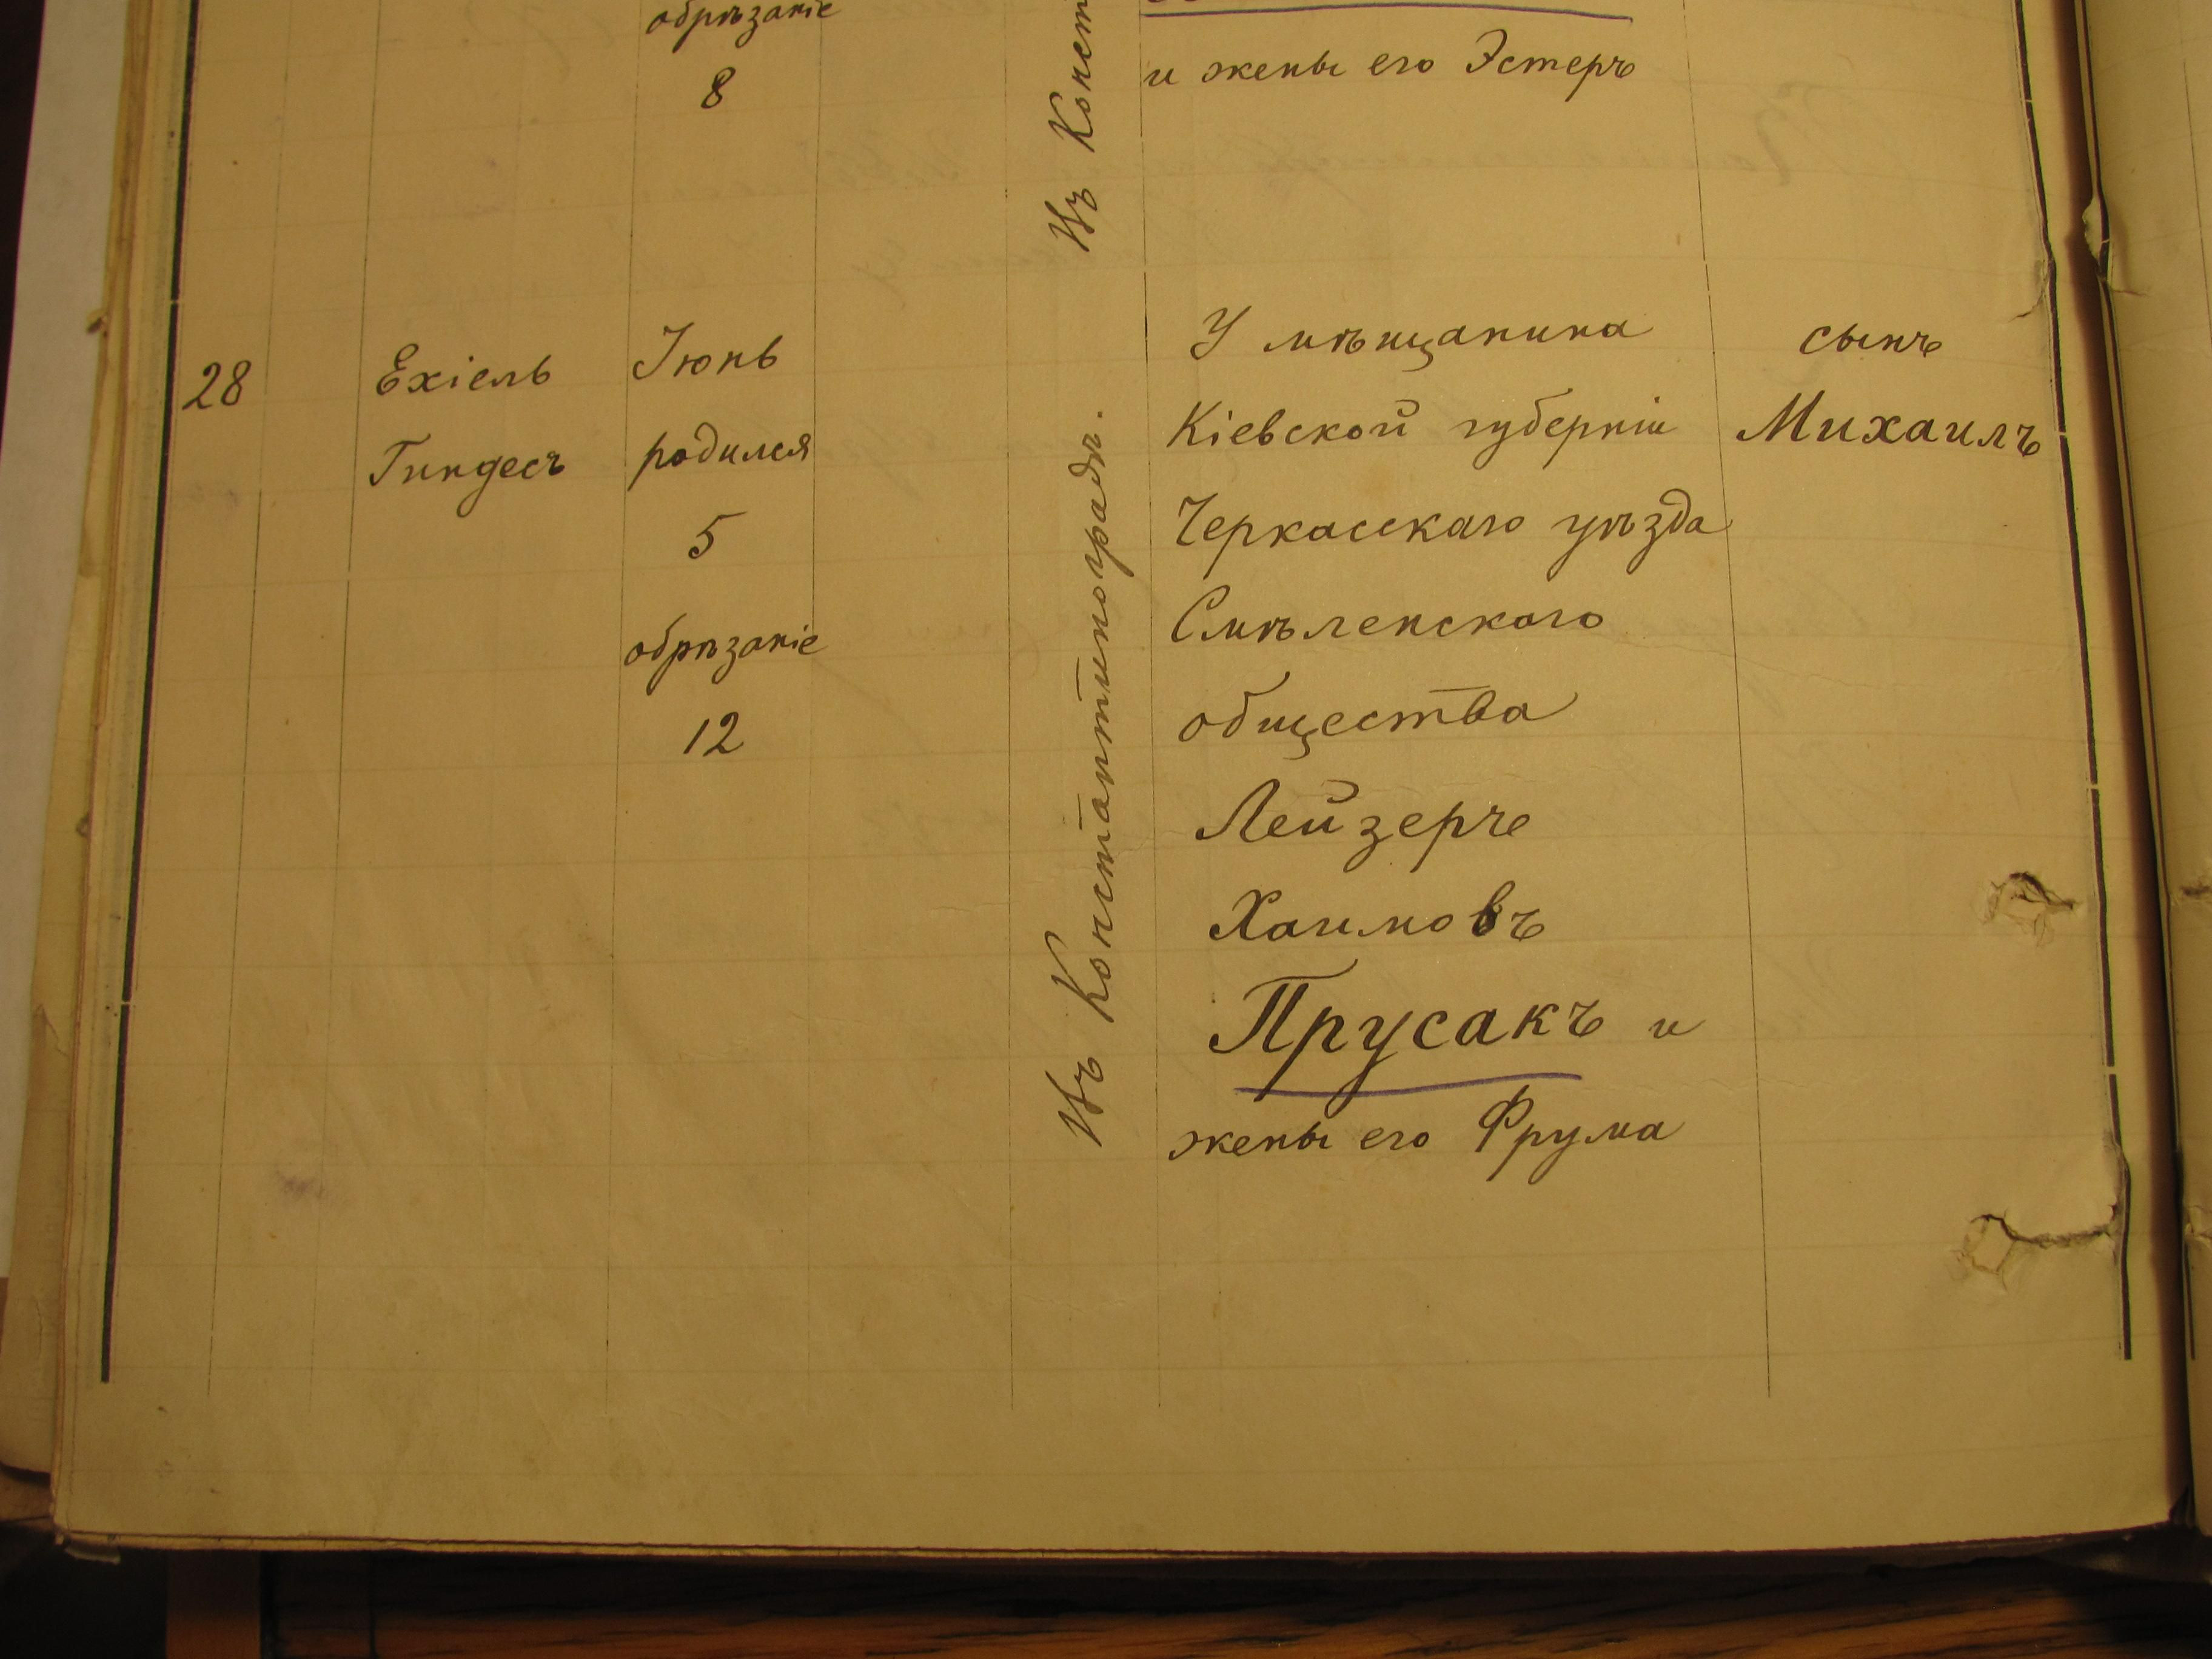 обрѣзаніе
8
Въ Конст
и жены его Эстеръ
28
Ехіель
Гиндесъ
Іюнь
родился
5
обрѣзаніе
12
Въ Константиноградѣ.
У мѣщанина
Кіевской губерніи
Черкасскаго уѣзда
Смѣленскаго
общества
Лейзеръ
Хаимовъ
Прусакъ и
жены его Фрума
сынъ
Михаилъ